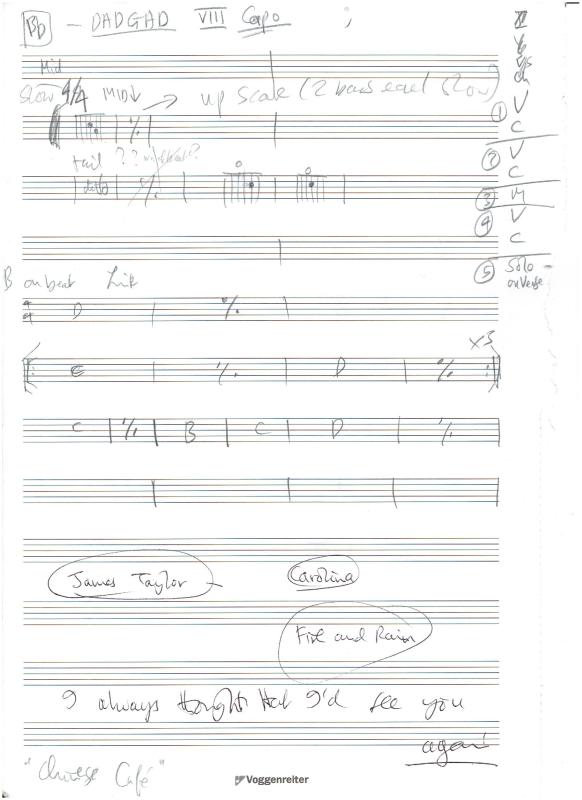 Bb - DADGAD VIII Capo
Mid
Slow 4/4 MID↓ → up Scale (2 bars each Slow)
① V
C
② V
C
③ M
④ V
C
⑤ Solo
on Verse
%
tail ? ?
%
B on beat Link
4/4 D %
C % D % x3
C % B C D %
James Taylor - Carolina
Fire and Rain
I always thought that I'd see you
again
"Chinese Café"
Voggenreiter